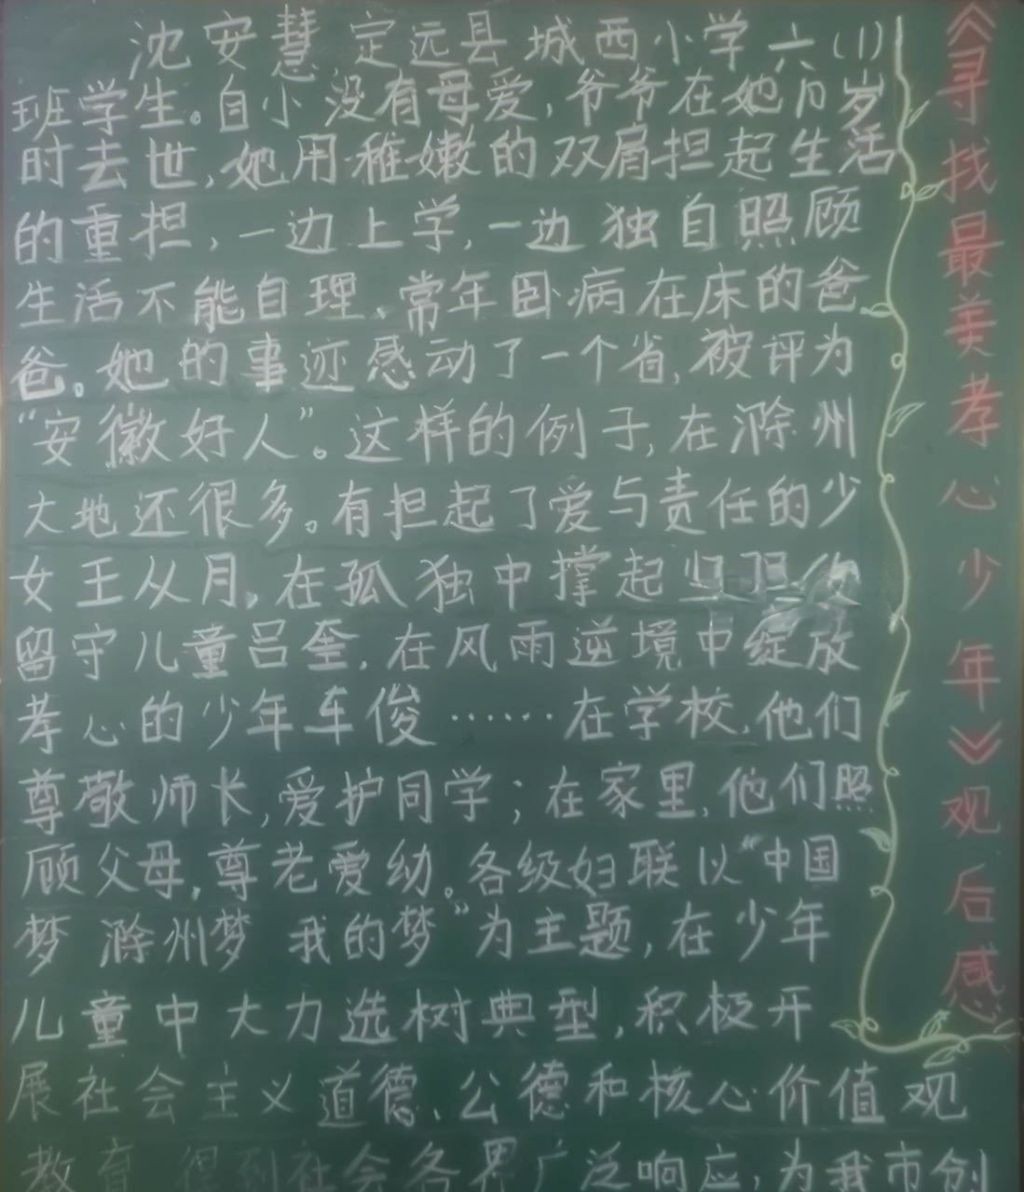 沈安慧 定远县城西小学六(1)
班学生。自小没有母爱,爷爷在她八岁
时去世,她用稚嫩的双肩担起生活
的重担,一边上学,一边独自照顾
生活不能自理、常年卧病在床的爸
爸。她的事迹感动了一个省,被评为
“安徽好人”。这样的例子,在滁州
大地还很多。有担起了爱与责任的少
女王从月,在孤独中撑起
留守儿童吕奎,在风雨逆境中绽放
孝心的少年车俊……在学校,他们
尊敬师长,爱护同学;在家里,他们照
顾父母,尊老爱幼。各级妇联以“中国
梦 滁州梦 我的梦”为主题,在少年
儿童中大力选树典型,积极开
展社会主义道德、公德和核心价值观
教育 得到社会各界广泛响应,为我市创
《寻找最美孝心少年》观后感